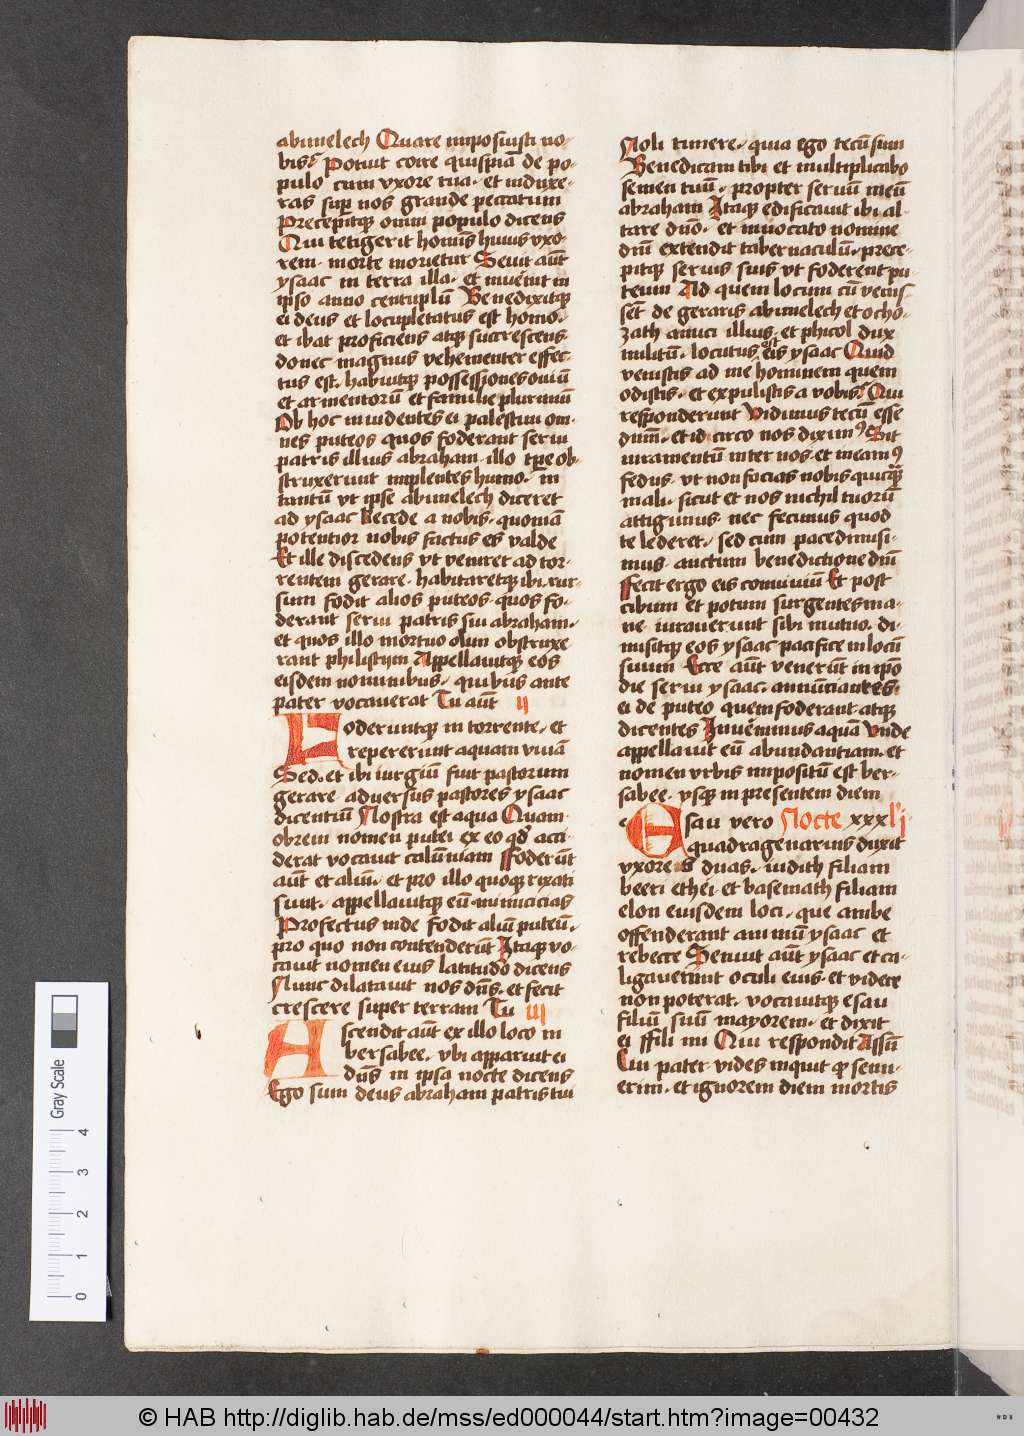 abimelech Quare imposuisti no-
bis? Potuit coire quispiã de po-
pulo cum vxore tua · et induxe-
ras sup̱ nos grande peccatum
Precepitqꝫ omni populo dicens
Qui tetigerit hoĩs huius vxo-
rem · morte morietur Seuit aũt
ysaac in terra illa · et inuẽit in
ipso anno centuplũ Benedixitqꝫ
ei deus et locupletatus est homo ·
et ibat proficiens atqꝫ succrescens
donec magnus vehementer effec-
tus est · habuitqꝫ possessiones ouiũ
et armentorũ et familie plurimũ
Ob hoc inuidentes ei palestini om-
nes puteos quos foderant serui
patris illius abraham · illo tp̱re ob-
struxerunt implentes humo · in
tantũ vt ipse abimelech diceret
ad ysaac Recede a nobis · quoniã
potentior nobis factus es valde
Et ille discedens vt veniret ad tor-
rentem gerare · habitaretqꝫ ibi · rur-
sum fodit alios puteos · quos fo-
derant serui patris sui abraham ·
et quos illo mortuo olim obstruxe
rant philistijm Appellauitqꝫ eos
eisdem nominibus · quibus ante
pater vocauerat Tu aũt ij
Foderuntqꝫ in torrente · et
repererunt aquam viuã
Sed · et ibi iurgiũ fuit pastorum
gerare aduersus pastores ysaac
dicentiũ Nostra est aqua Quam
obrem nomen putei ex eo qđ acci
derat vocauit calũniam Foderũt
aũt et aliũ · et pro illo quoqꝫ rixati
sunt · appellauitqꝫ eũ inimicicias
Profectus inde fodit aliũ puteũ ·
pro quo non contenderũt Itaqꝫ vo-
cauit nomen eius latitudo dicens
Nunc dilatauit nos dñs · et fecit
crescere super terram Tu iij
Ascendit aũt ex illo loco in
bersabee · vbi apparuit ei
dñs in ipsa nocte dicens
Ego sum deus abraham patris tui
Noli timere · quia ego tecũ sum
Benedicam tibi et multiplicabo
semen tuũ · propter seruũ meũ
abraham Itaqꝫ edificauit ibi al-
tare dño · et inuocato nomine
dñi extendit tabernaculũ · prece-
pitqꝫ seruis suis vt foderent pu-
teum Ad quem locum cũ venis-
sẽt de geraris abimelech et ocho-
zath amici illius · et phicol dux
militũ · locutus est eis ysaac Quid
venistis ad me hominem quem
odistis · et expulistis a vobis? Qui
responderunt Vidimus tecũ esse
dñm · et idcirco nos diximꝰ Sit
iuramentũ inter nos · et ineamꝰ
fedus · vt non facias nobis quicqꝫ
mali · sicut et nos nichil tuorũ
attigimus · nec fecimus quod
te lederet · sed cum pace dimisi-
mus · auctum benedictione dñi
Fecit ergo eis conuiuiũ Et post
cibum et potum surgentes ma-
ne · iurauerunt sibi mutuo · di-
misitqꝫ eos ysaac pacifice in locũ
suum Ecce aũt venerũt in ip̃o
die serui ysaac · annũciantes
ei de puteo quem foderant · atqꝫ
dicentes Inuẽimus aquã Vnde
appellauit eũ abundantiam · et
nomen vrbis impositũ est ber-
sabee · vsqꝫ in presentem diem
Esau vero Nocte xxxlj
quadragenarius duxit
vxores duas · iudith filiam
beeri ethei · et basemath filiam
elon eiusdem loci · que ambe
offenderant animũ ysaac et
rebecce Senuit aũt ysaac et ca-
ligauerunt oculi eius · et videre
non poterat · vocauitqꝫ esau
filiũ suũ mayorem · et dixit
ei Fili mi Qui respondit Assũ
Cui pater vides inquit qꝫ senu-
erim · et ignorem diem mortis
Gray Scale
0 1 2 3 4
© HAB http://diglib.hab.de/mss/ed000044/start.htm?image=00432